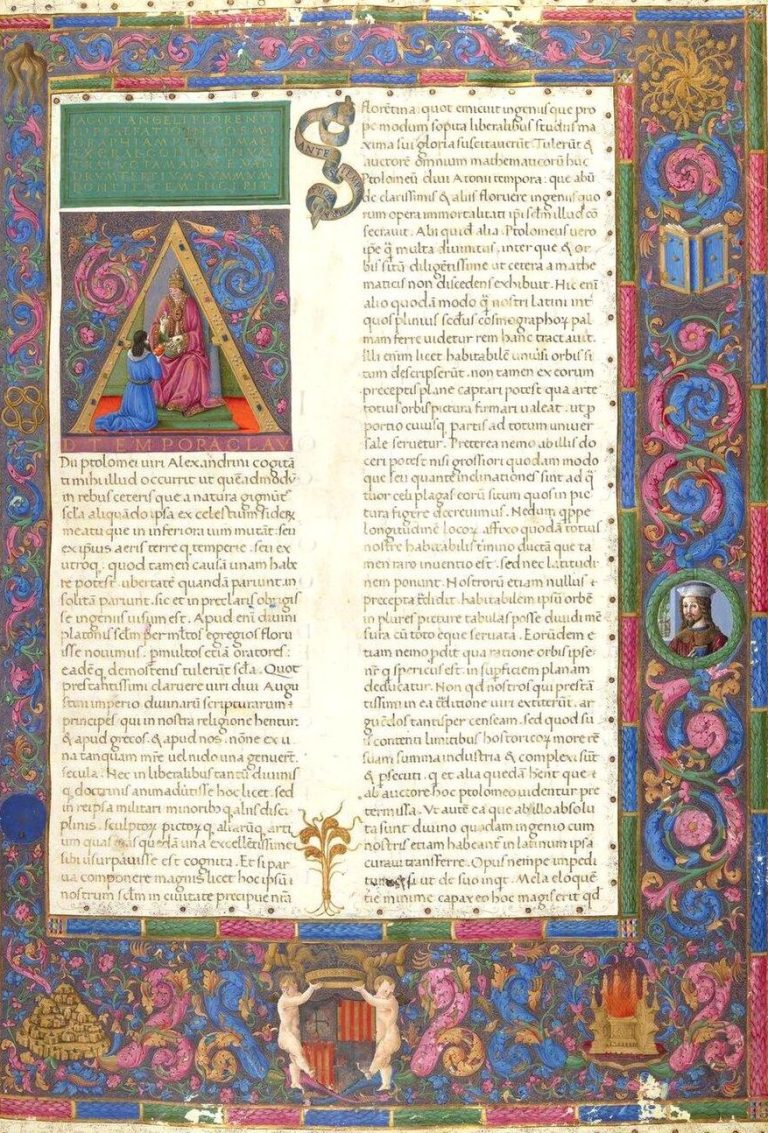 IACOPI ANGELI FLORENTI
PRAEFATIO IN COSMO
DRVM TERTIVM SVMMVM
PONTIFICEM INCIPIT
D TEMPORA CLAV
Dii ptolomei uiri Alexandrini cogitā
ti mihi illud occurrit ut queadmodū
in rebus ceteris que a natura gignūt
aliquādo ipsa ex celestium siderꝝ
meatu que in inferiora uim mutāt. seu
ex ipsius aeris terre q temperie. seu ex
utroq; quod tamen causā unam habe
re potest. ubertatē quandā pariunt in
solitā pariunt. sic et in preclaris
se ingeniis uisum est. Apud enī diuini
platonis egregios floru
isse nouimus. pmultos etiā oratores.
eadē q demostenis tulerūt Quot
prestantissimi claruere uiri diui Augu
stini imperio diuinarū scripturarum
principes qui in nostra religione hentur.
& apud grecos. & apud nos. nōne ex u
na tanquam mře uel nido una genuerūt
secula. Nec in liberalibus tantū diuinis
q doctrinis animaduertisse hoc licet. sed
in re ipsa militari minoribꝰ q aliis disci
plinis. sculptorꝝ pictorꝝ q. aliarūq. arti
um quas unam excellētissime
sibi usurpauisse est cognita. Et si par
ua componere magnis licet hoc ipsū
nostrum in ciuitate precipue nrā
ANTE
florētina. quot emicuit ingeniis que pro
pe modum sopita liberalibus studiis ma
xima sui gloria suscitauerūt. Tulerūt &
auctorē omnium mathematicorū hūc
Ptolomeū diui Atonii tempora. que abū
de clarissimis & aliis floruere ingeniis quo
rum opera immortalitati ipi illud cō
secrauit. Abi quid alia. Ptolomeus uero
ipe q multa diuinitus. inter que & or
bis sitū diligētissime ut cetera a mathe
maticus non discedens exhibuit. Hic enī
alio quodā modo q nostri Latini int
quos plinius sedus cosmographoꝝ pal
mam ferre uidetur rem hanc tractauit.
Illi enim licet habitabilē uniuersi orbis si
tum descripserūt. non tamen ex eorum
preceptis plane captari potest qua arte
totius orbis pictura firmari ualeat. ut p
portio cuiusq partis ad totum uniuer
sale seruetur. Preterea nemo ab illis do
ceri potest nisi grossiori quodam modo
que sei quante inclinationes sint ad q
tuor celi plagas eorū situm quos in pic
tura figere decreuimus. Nedum. qppe
longitudinē locoꝝ. affixo quodā totius
nostre habitabilis timino ductā que ta
men raro inuentio est. sed nec latitudi
nem ponunt. Nostrorū etiam nullus
precepta habitabilem ipsū orbē
in plures picture tabulas posse diuidi mē
sura cū toto eque seruata. Eorūdem e
tiam nemo pdit qua ratione orbis ipse
qui spericus est. in supficiem planam
deducatur. Non qd nostros qui prestā
tissimi in ea editione uiri extiterūt. ar
guēdos tantisper censeam. sed quod su
is contenti limitibus hostoricoꝝ more re
suam summa industria & complexi sūt
& psecuti. q et alia quedam hent que
ab auctore hoc ptolomeo uidentur pre
termissa. Vt autē ea que ab illo absolu
ta sunt diuino quodam ingenio cum
nostris etiam habeantꝛ in latinum ipsa
curaui transferre. Opus nempe impedi
si ut de suo inqt. Mela eloquē
tie minime capax eo hoc magis erit qd